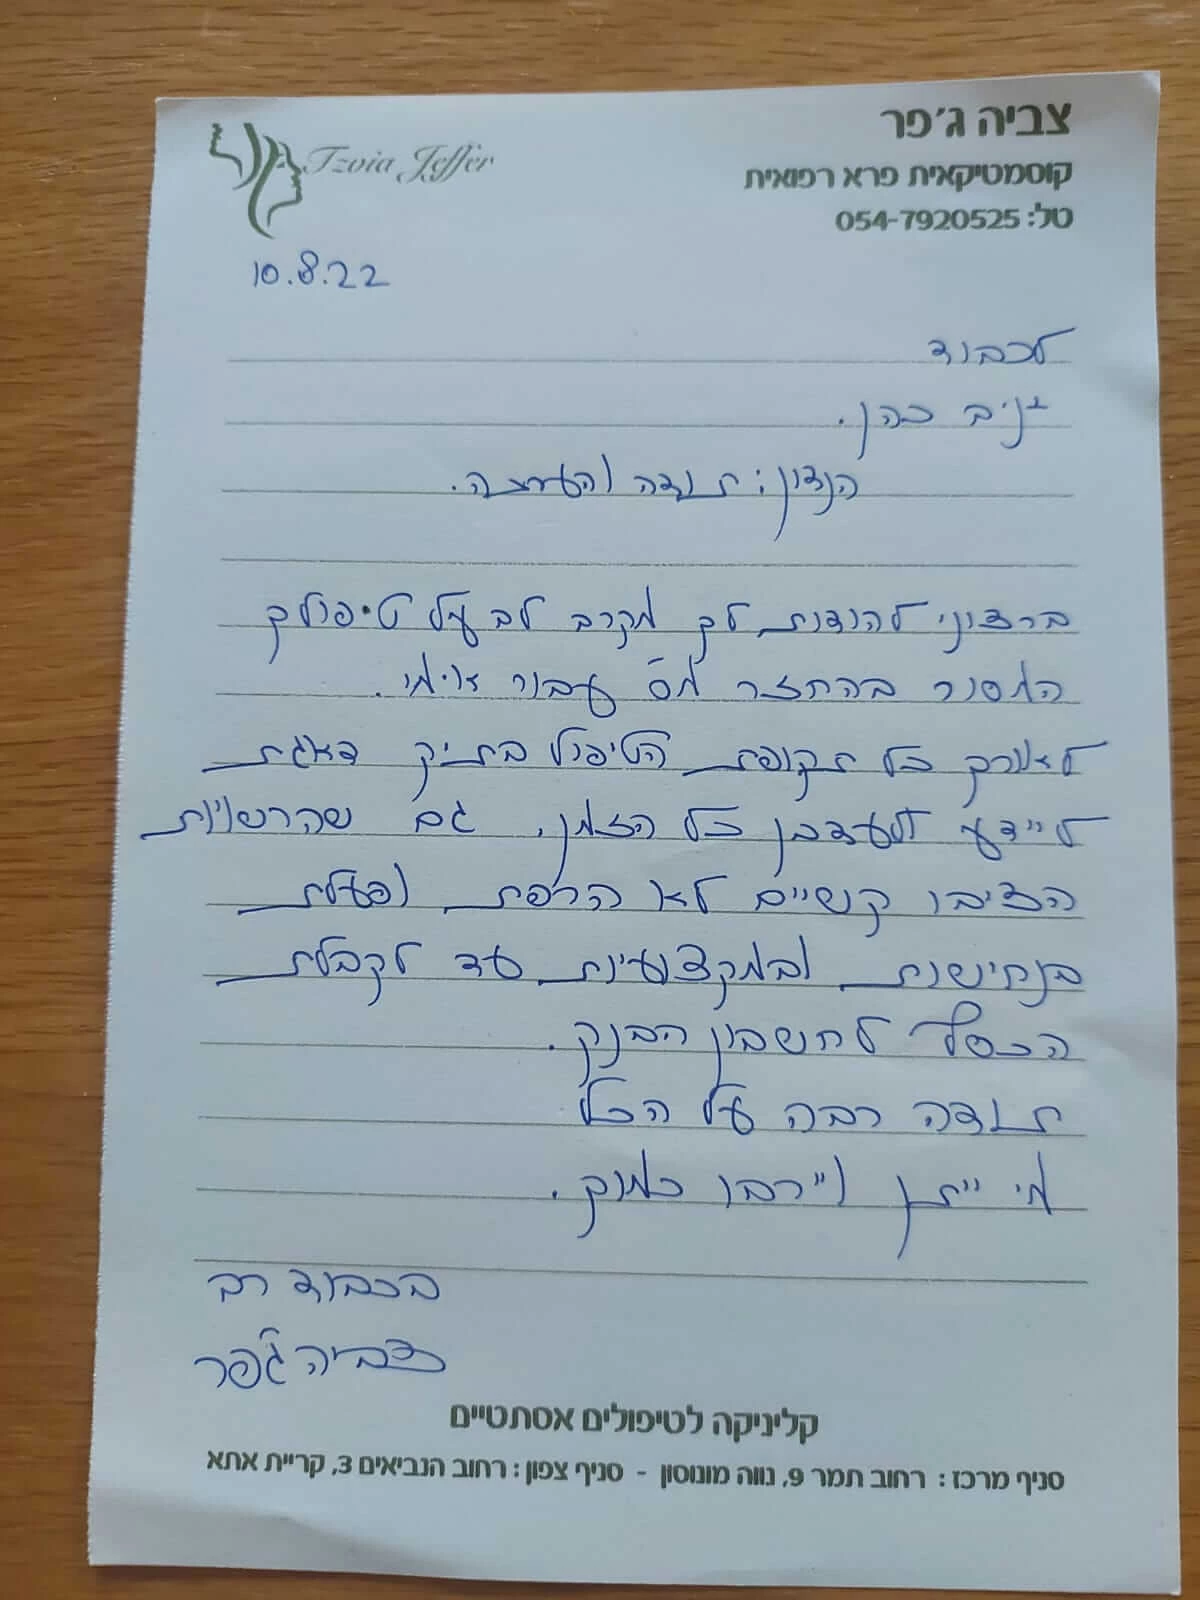 צביה ג'פר
Tzvia Jeffer
קוסמטיקאית פרא רפואית
טל: 054-7920525
10.8.22
לכבוד
יניב כהן.
הנדון: תודה והערכה.
ברצוני להודות לך מקרב לב על טיפולך
המסור בהחזר מס עבור אימי.
לאורך כל תקופת הטיפול בתיק דאגת
ליידע ולעדכן כל הזמן. גם שהרשויות
הציבו קשיים לא הרפת ופעלת
בנחישות ובמקצועיות עד לקבלת
הכסף לחשבון הבנק.
תודה רבה על הכל
מי ייתן וירבו כמוך.
בכבוד רב
צביה ג'פר
קליניקה לטיפולים אסתטיים
סניף מרכז: רחוב תמר 9, נווה מונוסון - סניף צפון: רחוב הנביאים 3, קריית אתא